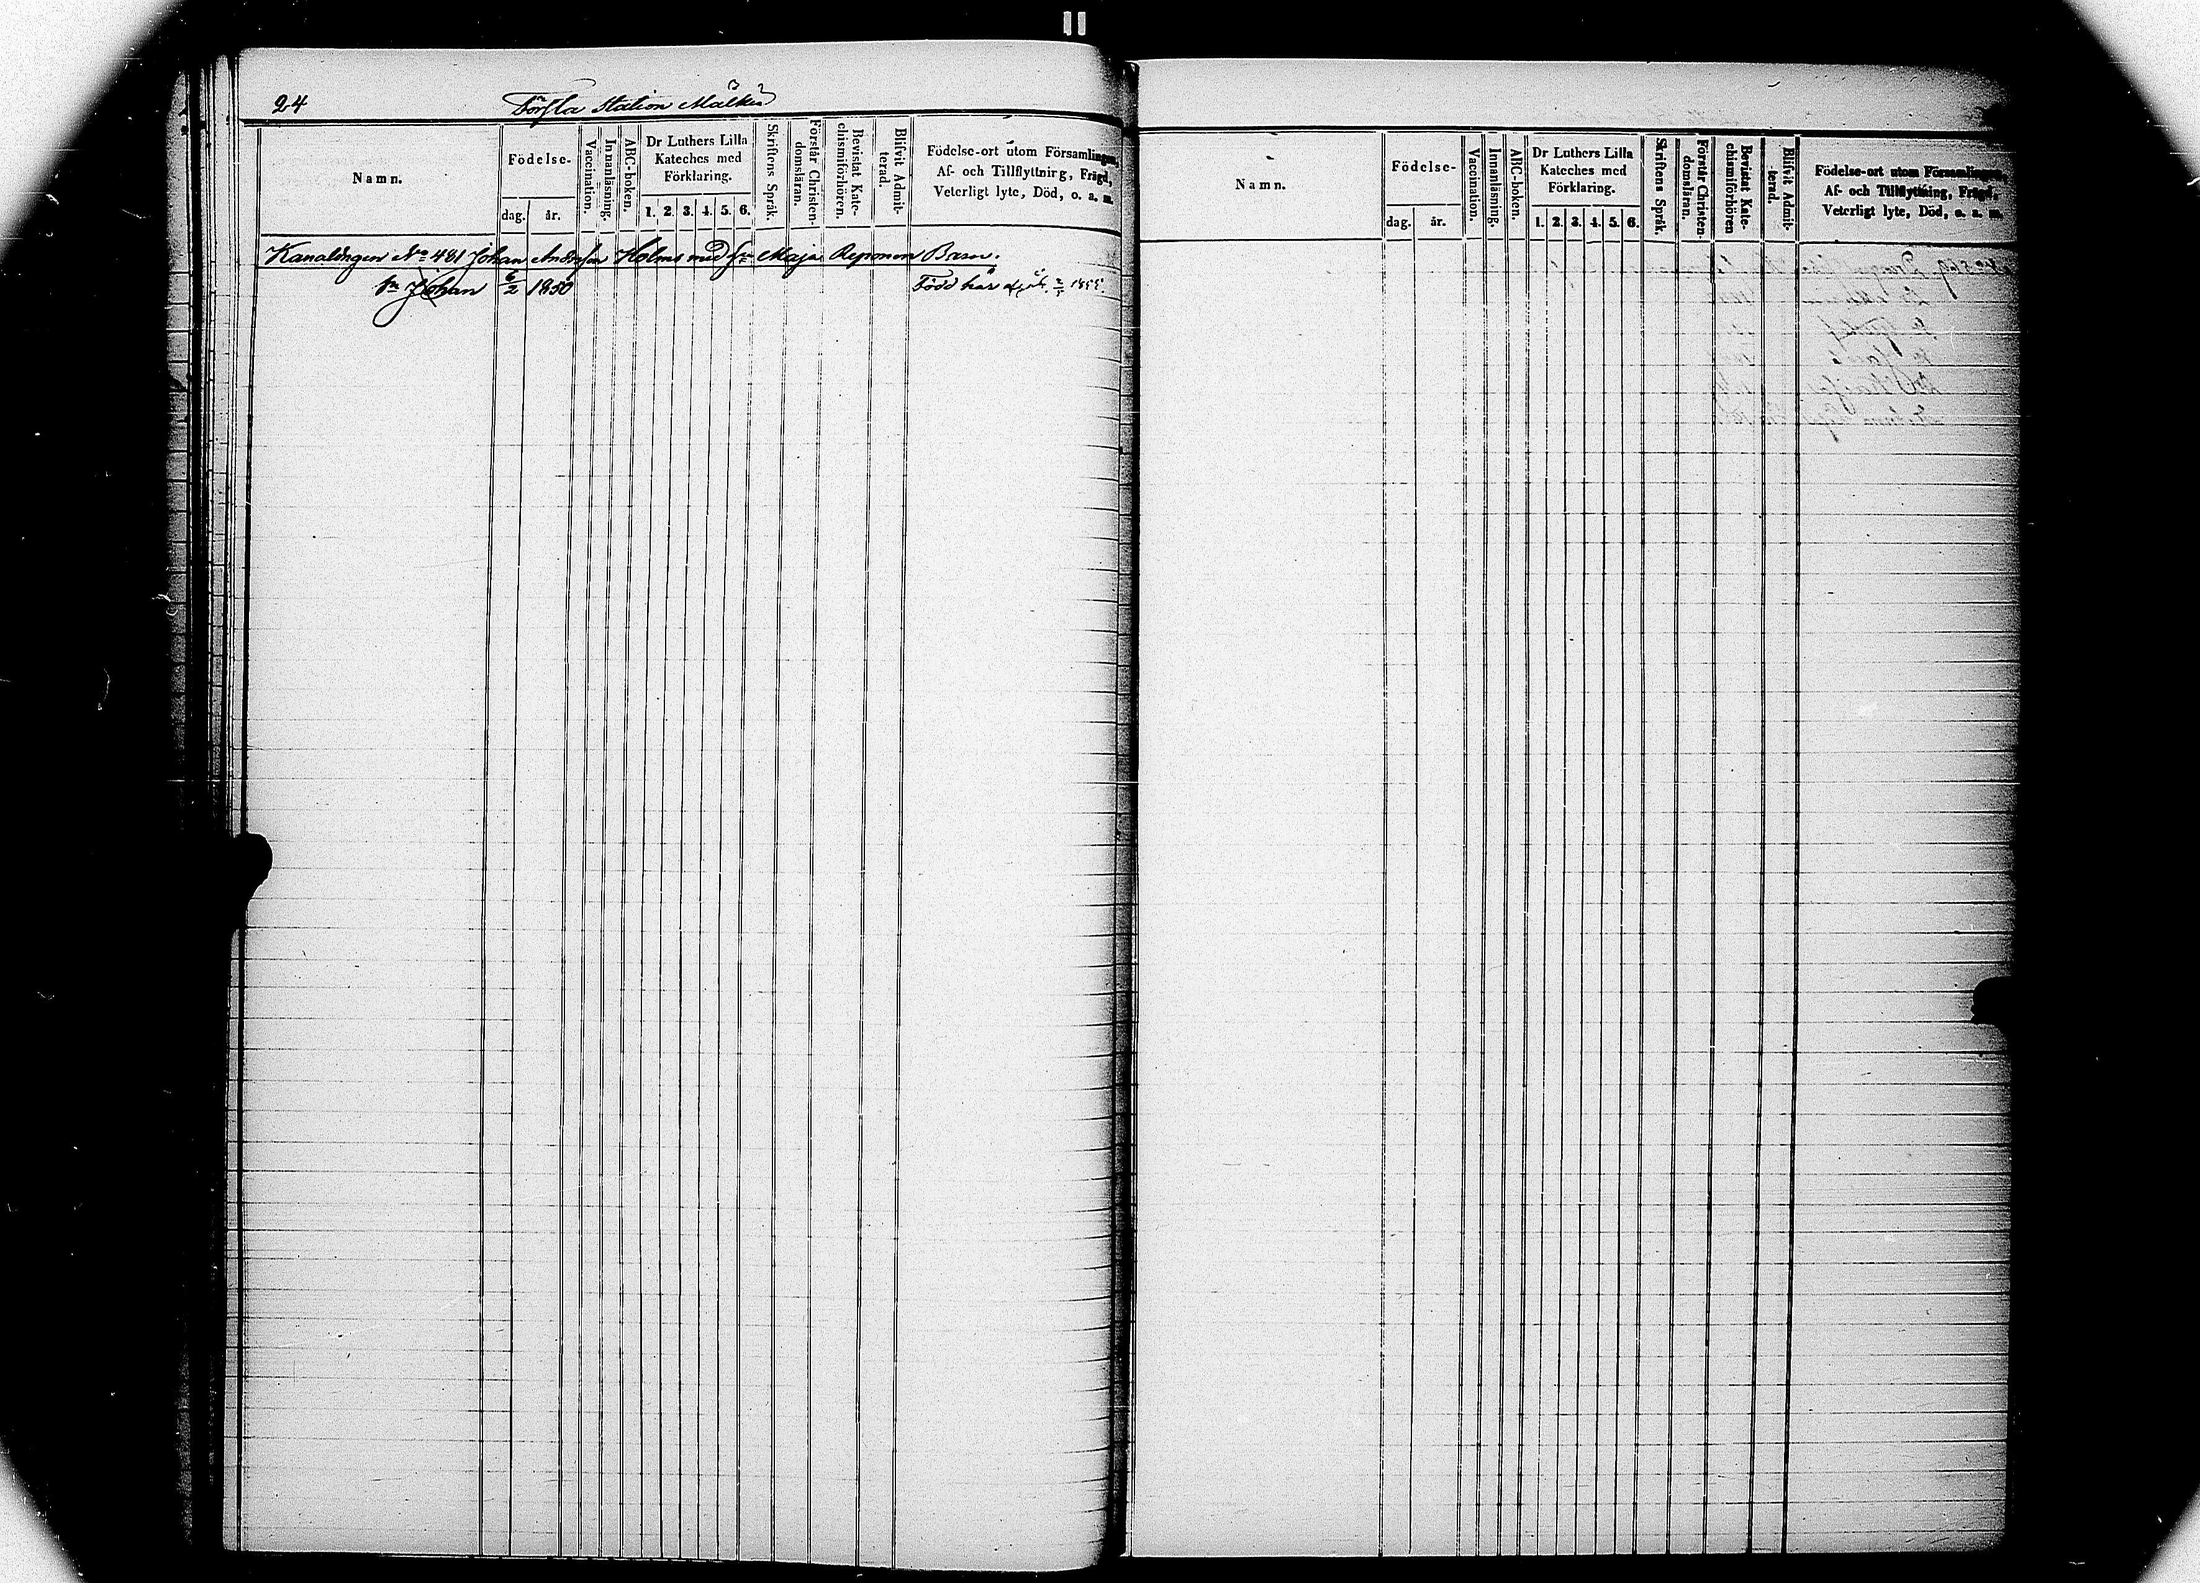 24 Förſta Station Mälkiä
Namn.
Födelse-
dag. år.
Vaccination.
Innanläsning.
ABC-boken.
Dr Luthers Lilla
Kateches med
Förklaring.
1. 2. 3. 4. 5. 6.
Skriftens Språk.
Förstår Christen-
domsläran.
Bevistat Kate-
chismiförhören.
Blifvit Admit-
terad.
Födelse-ort utom Församlingen,
Af- och Tillflyttnirg, Frägd,
Veterligt lyte, Död, o. a. m.
Kanaldngen No 481 Johan Anderſon Holms med hu Maja Reponen Barn.
Sn Johan 6/2 1850 Född här 1855.
Namn.
Födelse-
dag. år.
Vaccination.
Innanläsning.
ABC-boken.
Dr Luthers Lilla
Kateches med
Förklaring.
1. 2. 3. 4. 5. 6.
Skriftens Språk.
Förstår Christen-
domsläran.
Bevistat Kate-
chismiförhören
Blifvit Admit-
terad.
Födelse-ort utom Församlingen,
Af- och Tillflyttning, Frägd,
Veterligt lyte, Död, o. a. m.